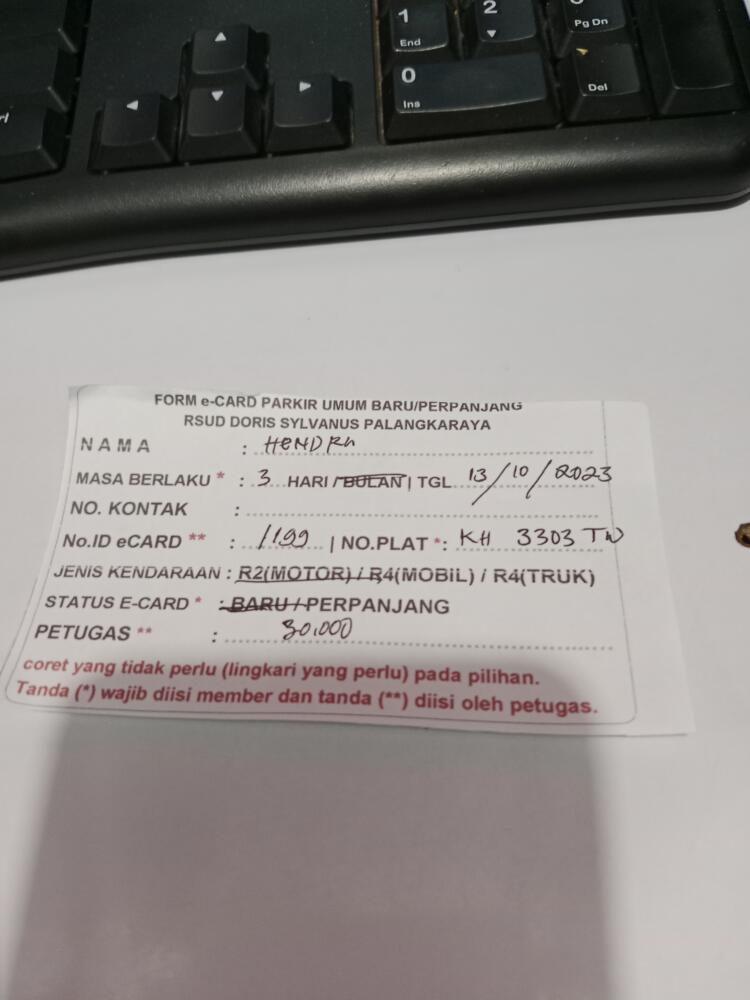 1
End
2
Pg Dn
0
Ins
Del
FORM e-CARD PARKIR UMUM BARU/PERPANJANG
RSUD DORIS SYLVANUS PALANGKARAYA
NAMA : HENDRA
MASA BERLAKU * : 3 HARI / BULAN | TGL 13/10/2023
NO. KONTAK :
No.ID eCARD ** : 1199 | NO.PLAT *: KH 3303 TW
JENIS KENDARAAN : R2(MOTOR) / R4(MOBIL) / R4(TRUK)
STATUS E-CARD * : BARU / PERPANJANG
PETUGAS ** : 30.000
coret yang tidak perlu (lingkari yang perlu) pada pilihan.
Tanda (*) wajib diisi member dan tanda (**) diisi oleh petugas.